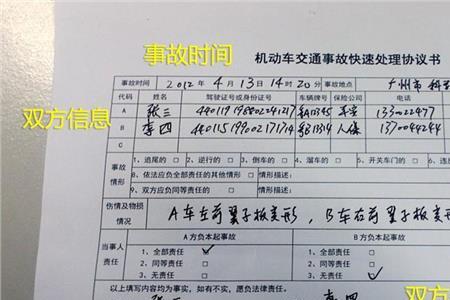 事故时间
机动车交通事故快速处理协议书
双方信息
事故时间 2012 年 4 月 13 日 14 时 20 分 事故地点 广州市
代码 姓名 驾驶证号或身份证号 车辆牌号 保险公司 电话
A 张三 440119198802241217 133022477
B 李四 440115199002171714 人保 1370044244
事故情形
1、追尾的 □ 2、逆行的 □ 3、倒车的 □ 4、溜车的 □ 5、开关车门的 □ 6、违
8、依法应负全部责任的其他情形 □ 情形描述:
9、双方应负同等责任的 □ 情形描述:
伤情及物损情况 A车左前翼子板变形, B车右前翼子板变形
当事人责任
A 方负本起事故 B 方负本起事故
1、全部责任 ✓ 1、全部责任 □
2、同等责任 □ 2、同等责任 □
3、无责任 □ 3、无责任 ✓
以上填写内容均为事实,如有不实,愿负法律责任。